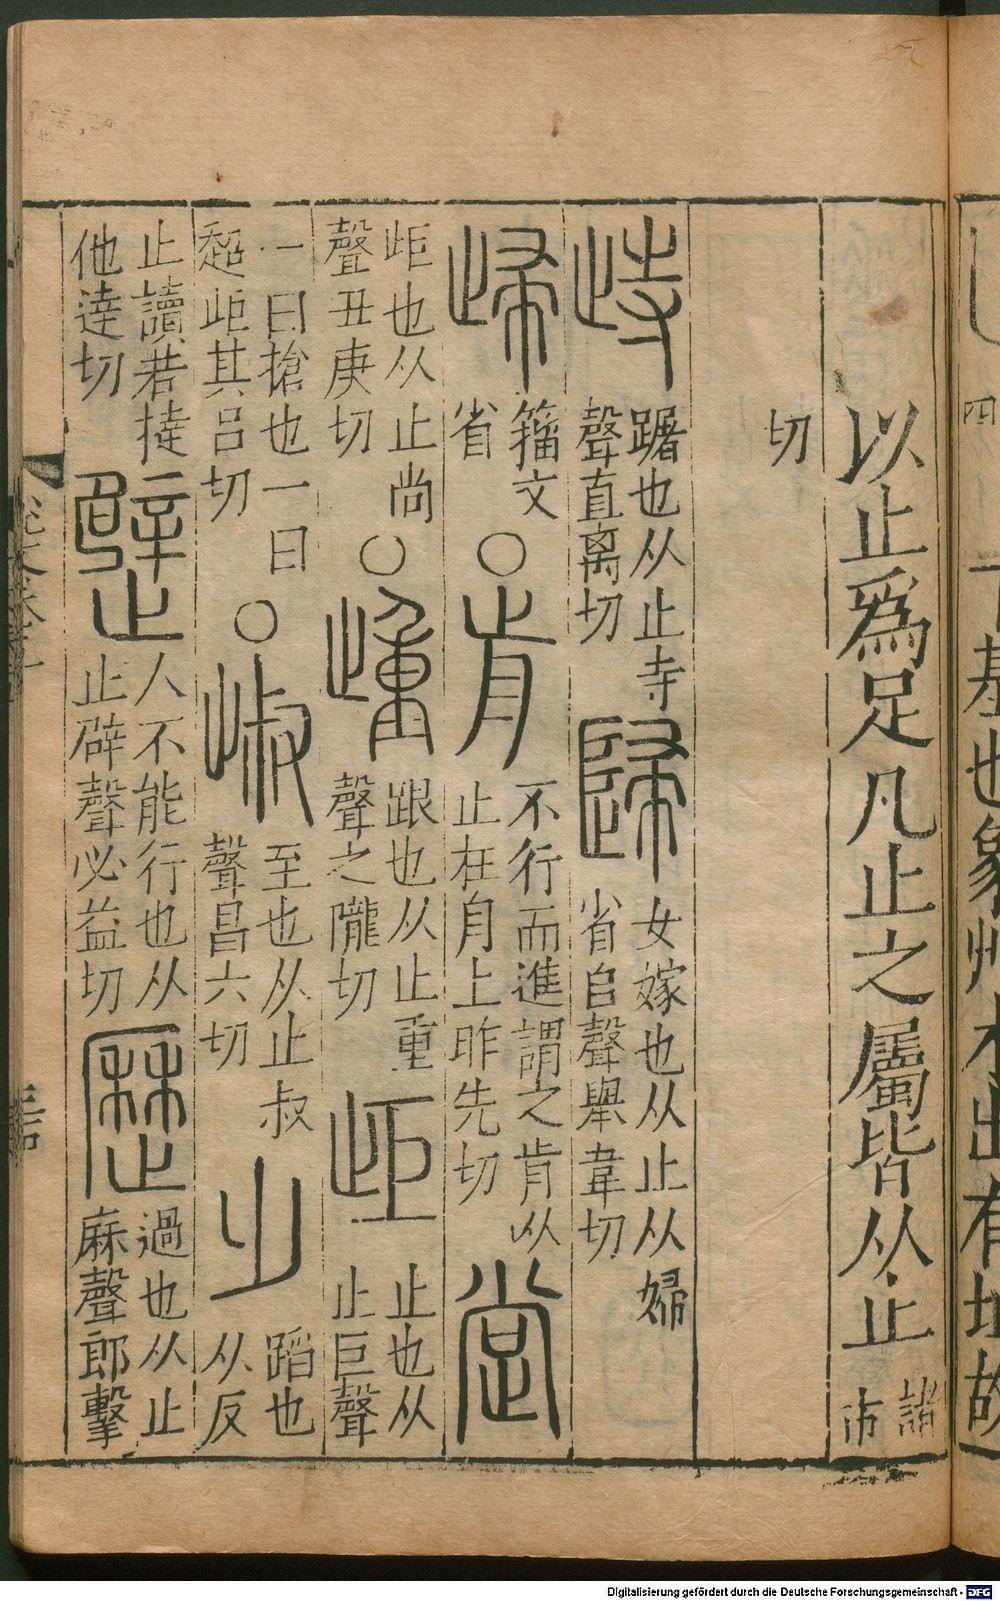 基也象艸木出有址故
以止爲足凡止之屬皆从止 諸市
切
歭 踞也从止寺聲直离切 歸 女嫁也从止从婦省𠂤聲舉韋切
㱕 籀文省 ○ 歬 不行而進謂之歬从止在舟上昨先切 㫶
歫也从止尚聲丑庚切 ○ 歱 跟也从止重聲之隴切 歫 止也从止巨聲
一曰搶也一曰超歫其呂切 ○ 㱽 至也从止叔聲昌六切 𣥂 蹈也从反
止讀若撻他達切 躄 人不能行也从止辟聲必益切 歷 過也从止厤聲郎擊
Digitalisierung gefördert durch die Deutsche Forschungsgemeinschaft - DFG